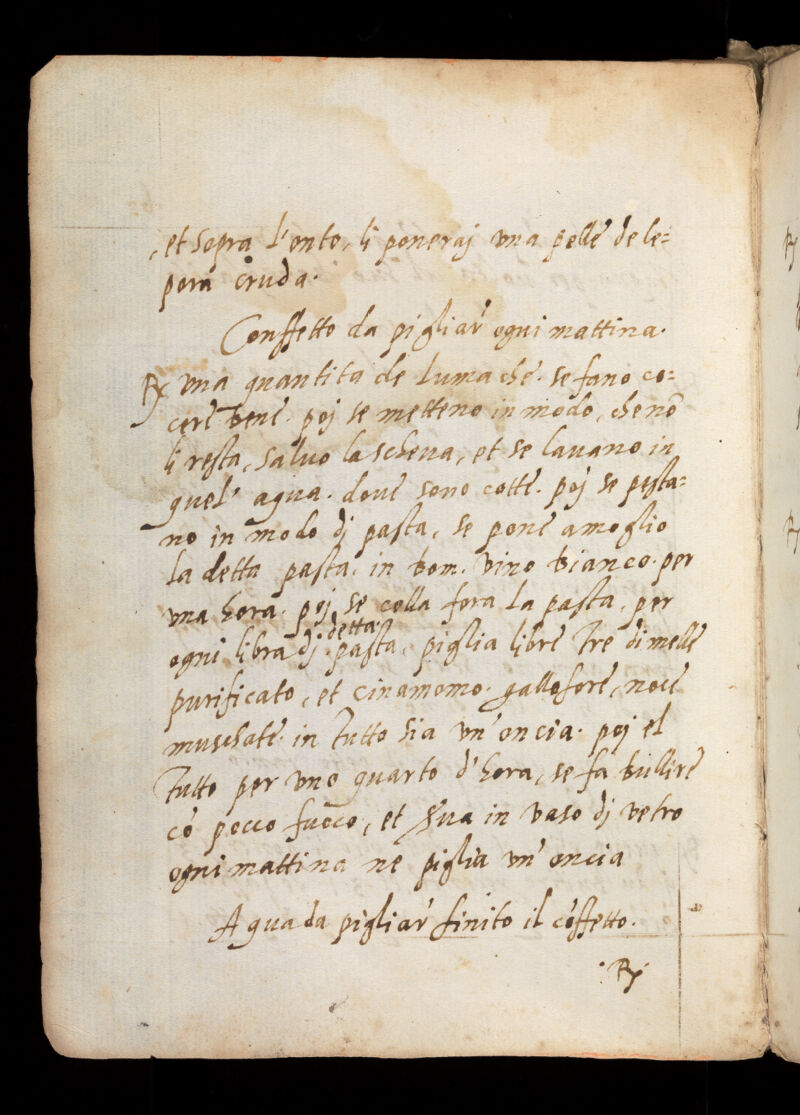 , et sopra l'onto, li poneraj una pelle de le=
pora cruda.
Conffetto da pigliar ogni mattina.
℞ una quantita de lumache. se fano co=
cere bene. poj se metteno in modo, che nõ
li resta, salvo la schena, et se lavano in
quel' aqua. dove sono cotte. poj se pesta=
no in modo dj pasta, se pone amoglio
la detta pasta. in bom. vino bianco. per
una hora. poj se colla fora la pasta, per
ogni libra dj detta. pasta. piglia libre tre di melle
purificato, et cinamomo. gallofore, noce
muschate. in tutto sia un' oncia. poj el
tutto per uno quarto d'hora, se fa bullire
cõ pocco fuoco, et in vaso dj vetro
ogni mattina ne piglia un' oncia
Aqua da pigliar finito il cõffetto.
. ℞